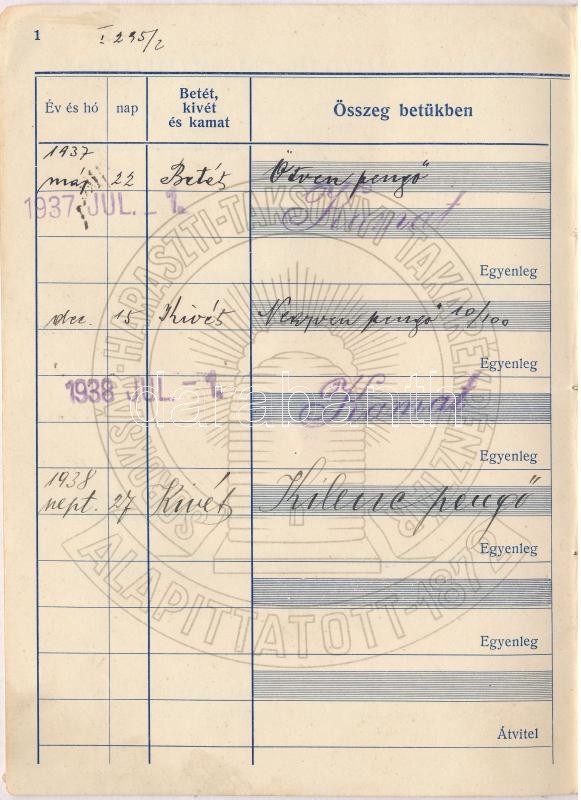 1 I 295/2
Év és hó nap Betét, kivét és kamat Összeg betükben
1937
máj 22 Betét Ötven pengő
1937 JUL. - 1. Kamat
Egyenleg
dec. 15 Kivét Negyven pengő 10/100
Egyenleg
1938 JUL. - 1. Kamat
darabanth
Egyenleg
1938
szept. 27 Kivét Kilenc pengő
Egyenleg
Egyenleg
Átvitel
HARASZTI-TAKSONYI TAKARÉKPÉNZTÁR
ALAPITTATOTT-1872